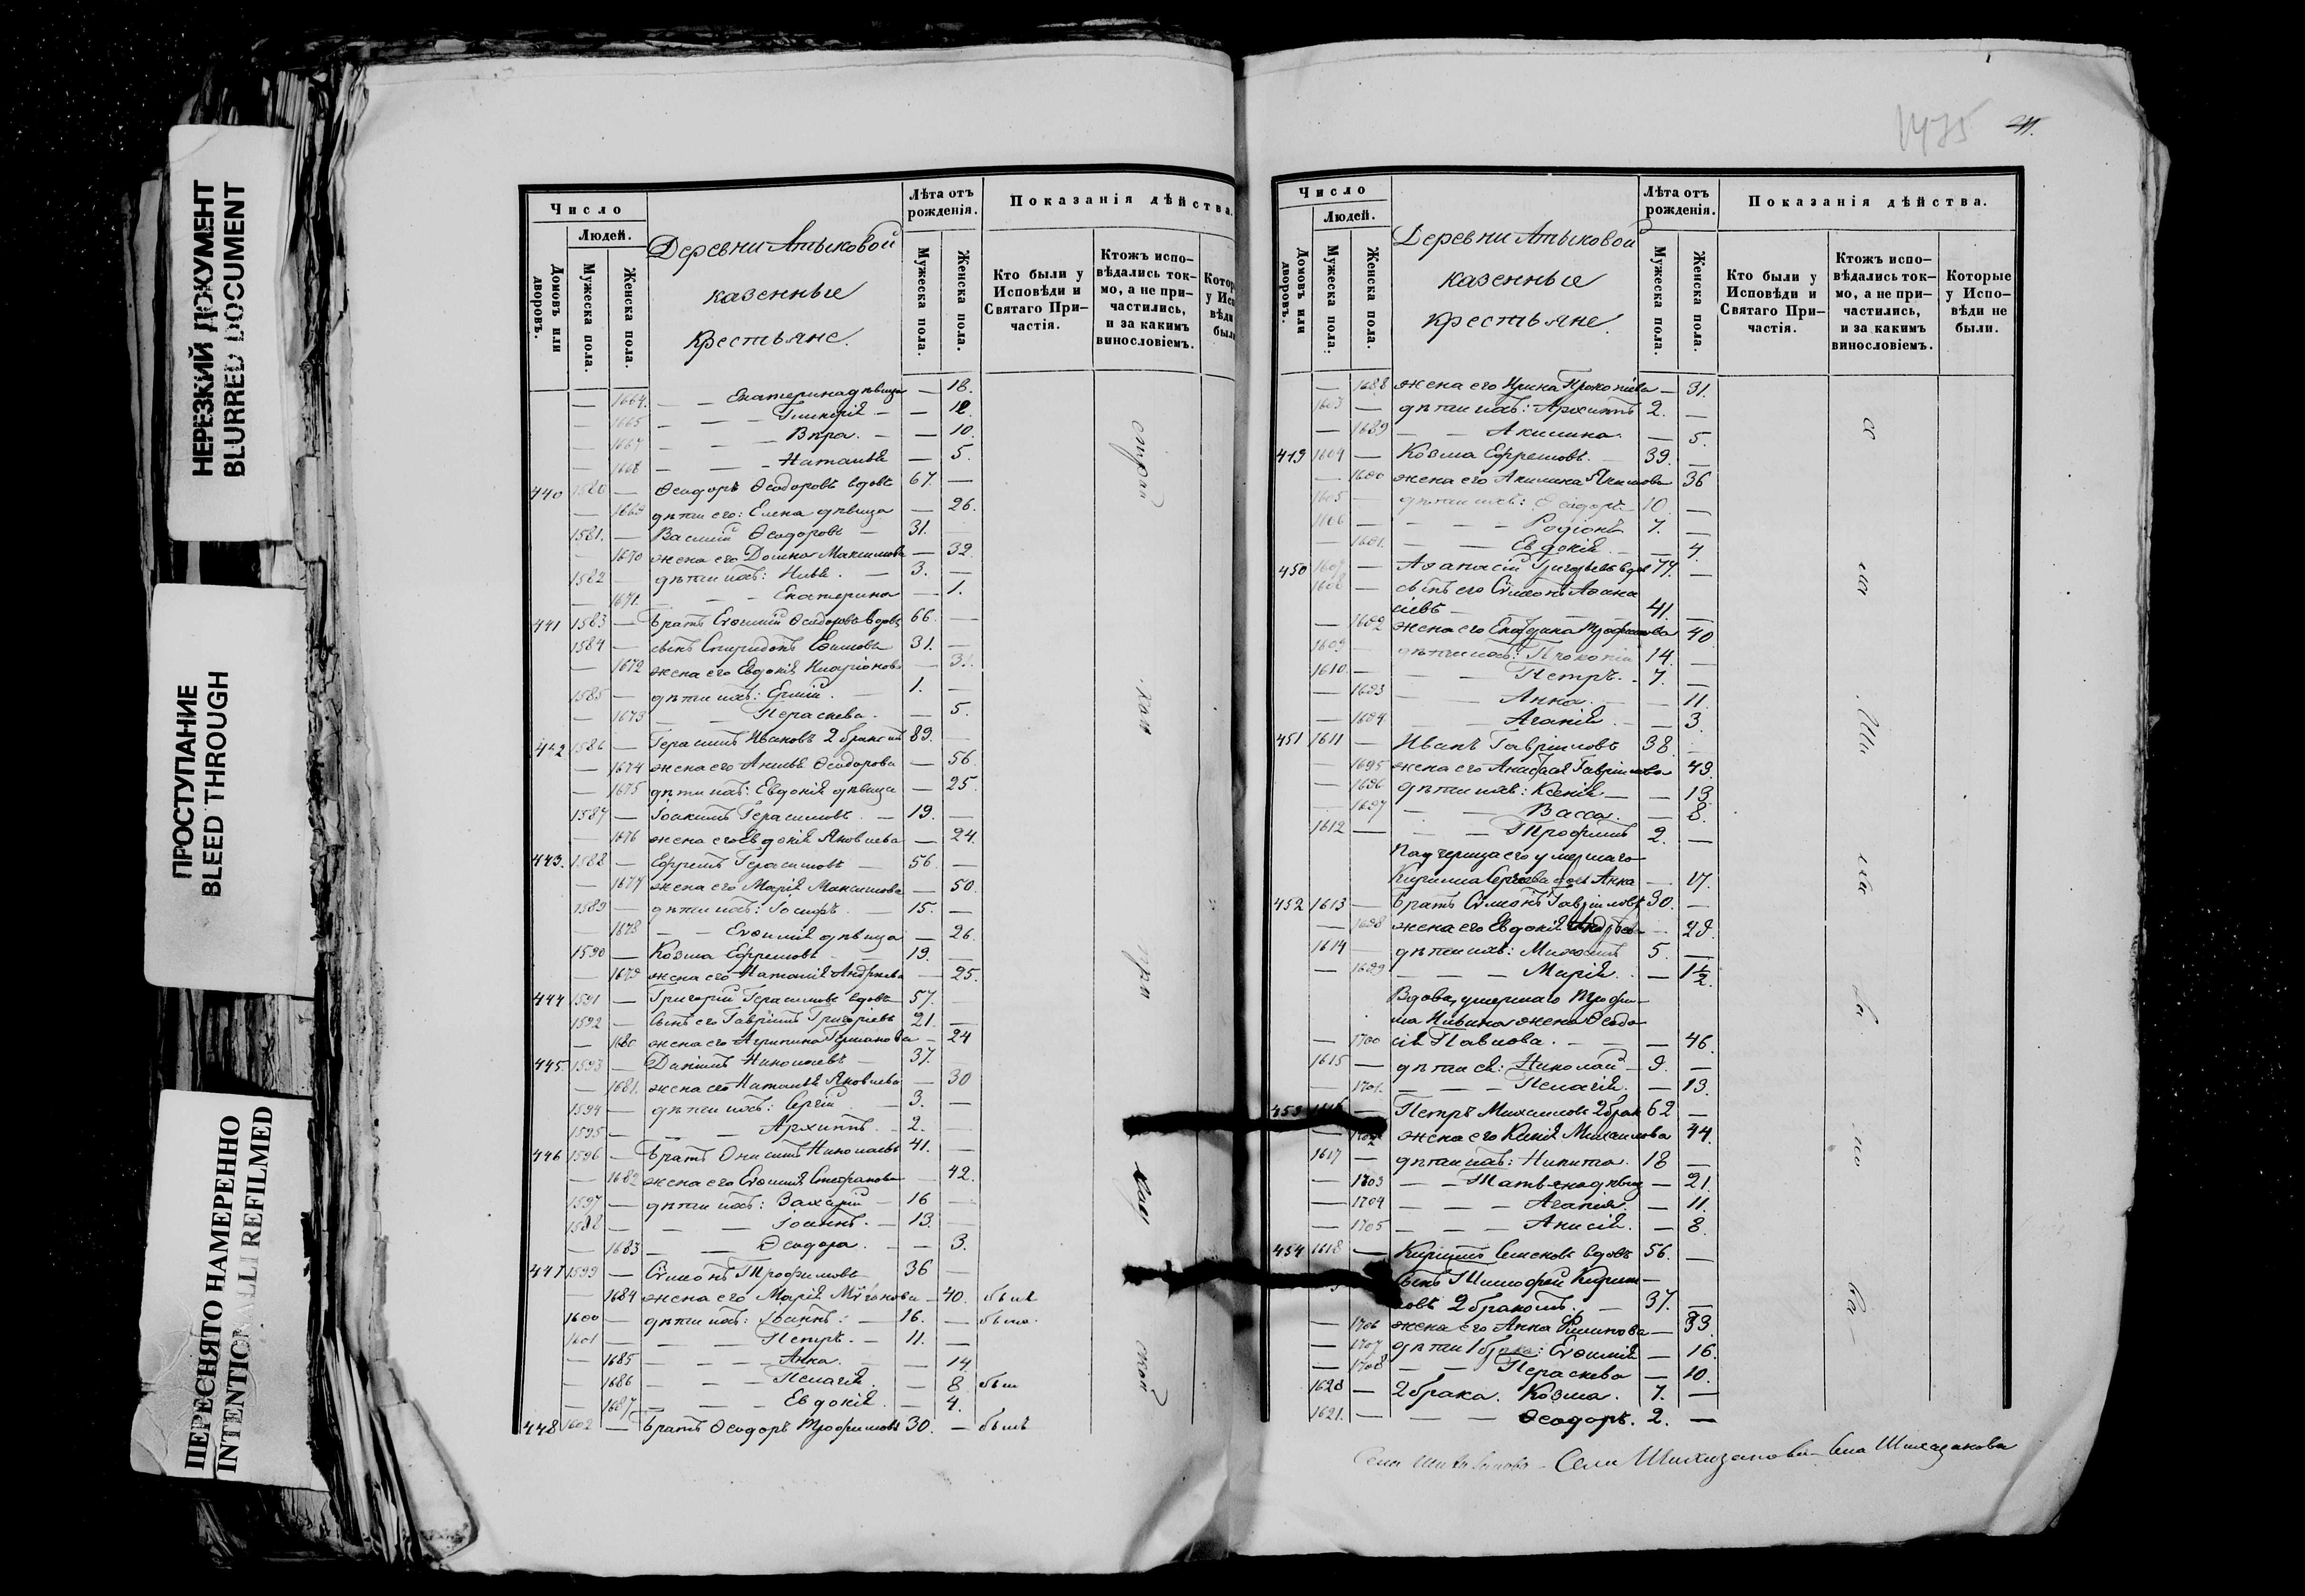 НЕРЕЗКИЙ ДОКУМЕНТ
BLURRED DOCUMENT
ПРОСТУПАНИЕ
BLEED THROUGH
ПЕРЕСНЯТО НАМЕРЕННО
INTENTIONALLI REFILMED
Число
Людей.
Домовъ или дворовъ.
Мужеска пола.
Женска пола.
Деревни Атыковой
казенные
крестьяне.
Лѣта отъ рожденія.
Мужеска пола.
Женска пола.
Показанія дѣйства.
Кто были у Исповѣди и Святаго При-частія.
Ктожъ испо-вѣдались ток-мо, а не при-частились, и за какимъ винословіемъ.
— 1664. — — Екатерина дѣвица — 18.
— 1665 — — Гликерія — — 12.
— 1667 — — Вѣра. — — 10.
— 1668 — — Наталья — 5.
440 1580 — Ѳеодоръ Ѳеодоровъ вдовъ 67. —
— 1669 дѣти его: Елена дѣвица — 26.
1581. — Василій Ѳеодоровъ — 31.
— 1670 жена его Домна Максимова — 32.
1582 — дѣти ихъ: Илья. — 3. —
— 1671. — — Екатерина — 1.
441 1583 — Братъ Евѳимій Ѳеодоровъ вдовъ 66. —
1584 — сынъ Спиридонъ Евѳимовъ 31. —
— 1672 жена его Евдокія Иларіонова — 31.
1585 — дѣти ихъ: Ермій. — 1. —
— 1673 — — Параскева. — 5.
442 1586 — Герасимъ Ивановъ 2 бракомъ 89. —
— 1674 жена его Анна Ѳеодорова — 56.
— 1675 дѣти ихъ: Евдокія дѣвица — 25.
1587 — Іоакимъ Герасимовъ — 19. —
— 1676 жена его Евдокія Яковлева — 24.
443. 1588 — Ефремъ Герасимовъ — 56. —
— 1677 жена его Марія Максимова — 50.
1589 — дѣти ихъ: Іосифъ. — 15. —
— 1678 — — Евѳимія дѣвица — 26.
1590 — Козма Ефремовъ — 19. —
— 1679 жена его Наталія Андреева — 25.
444 1591 — Григорій Герасимовъ вдовъ 57. —
1592 — Сынъ его Гавріилъ Григоріевъ 21. —
— 1680 жена его Агрипина Германова — 24
445 1593 — Даніилъ Николаевъ — 37.
— 1681. жена его Наталья Яковлева — 30
1594 — дѣти ихъ: Сергій — 3. —
1595 — — — Архиппъ. — 2. —
446 1596 — Братъ Онисимъ Николаевъ 41. —
— 1682 жена его Евѳимія Стефанова — 42.
1597 — дѣти ихъ: Захарій — 16 —
1598 — — — Іоаннъ. — 13. —
— 1683 — — Ѳеодора. — — 3.
447 1599 — Сѵмонъ Трофимовъ 36 —
— 1684 жена его Марія — 40. была
1600 — дѣти ихъ: Іоаннъ: — 16. — былъ.
1601 — — — Петръ. — 11. —
— 1685 — — Анна. — — 14
— 1686 — — Пелагія. — 8. был
— 1687 — — Евдокія. — 4.
448 1602 — Братъ Ѳеодоръ Трофимовъ 30. — былъ
1475
Число
Людей.
Домовъ или дворовъ.
Мужеска пола.
Женска пола.
Деревни Атыковой
казенные
крестьяне.
Лѣта отъ рожденія.
Мужеска пола.
Женска пола.
Показанія дѣйства.
Кто были у Исповѣди и Святаго При-частія.
Ктожъ испо-вѣдались ток-мо, а не при-частились, и за какимъ винословіемъ.
Которые у Испо-вѣди не были.
— 1688 жена его Ирина Прокопіева — 31.
1603 — дѣти ихъ: Архиппъ 2. —
— 1689 — — Акилина. — 5.
449 1604 — Козма Ефремовъ. — 39. —
— 1690 жена его Акилина Якимова 36
1605 — дѣти ихъ: Ѳеодоръ 10. —
1606 — — — Родіонъ 7. —
— 1691. — — Евдокія. — 4.
450 1607 — Аѳанасій Григорьевъ вдов 77. —
1608 — сынъ его Сѵмеонъ Аѳана
сіевъ — 41. —
— 1692 жена его Екатерина Трофимова 40
1609 — дѣти ихъ: Прокопій 14. —
1610 — — — Петръ. — 7. —
— 1693 — Анна. — — 11.
— 1694 — Агапія. — — 3.
451 1611 — Иванъ Гавріиловъ 38 —
— 1695 жена его Анастасія Гавріилова 43.
— 1696 дѣти ихъ: Ксенія — — 13
— 1697 — — Васса. — 8.
1612 — — — Трофимъ 2. —
Падчерица его умершаго
Кирилла Сергѣева дочь Анна — 17.
452 1613 — Братъ Сѵмеонъ Гавріиловъ 30. —
— 1698 жена его Евдокія Андреева — 29.
1614 — дѣти ихъ: Михаилъ 5. —
— 1699 — — Марія. — 1½.
Вдова, умершаго Трофи-
ма Ильина жена Ѳеодо
— 1700 сія Павлова. — — 46.
1615 — дѣти ея: Николай — 9. —
— 1701. — — Пелагія. — 13.
453 1616 — Петръ Михаиловъ 2 брак 62 —
— 1702 жена его Ксенія Михаилова 44.
1617 — дѣти ихъ: Никита. 18 —
— 1703 — — Татьяна дѣвиц — 21.
— 1704 — — Агапія. — 11.
— 1705 — — Анисія. — 8.
454 1618 — Кириллъ Семеновъ вдовъ 56. —
сынъ Тимофей Кирил—
ловъ 2 бракомъ. — 37. —
— 1706 жена его Анна Филипова — 33.
— 1707 дѣти 1 брака: Евѳимія — 16.
— 1708 — — Параскева — 10.
1620 — 2 брака. Козма. 7. —
1621. — — — Ѳеодоръ. 2. —
Села Шихазанова – Села Шихазанова – Села Шихазанова